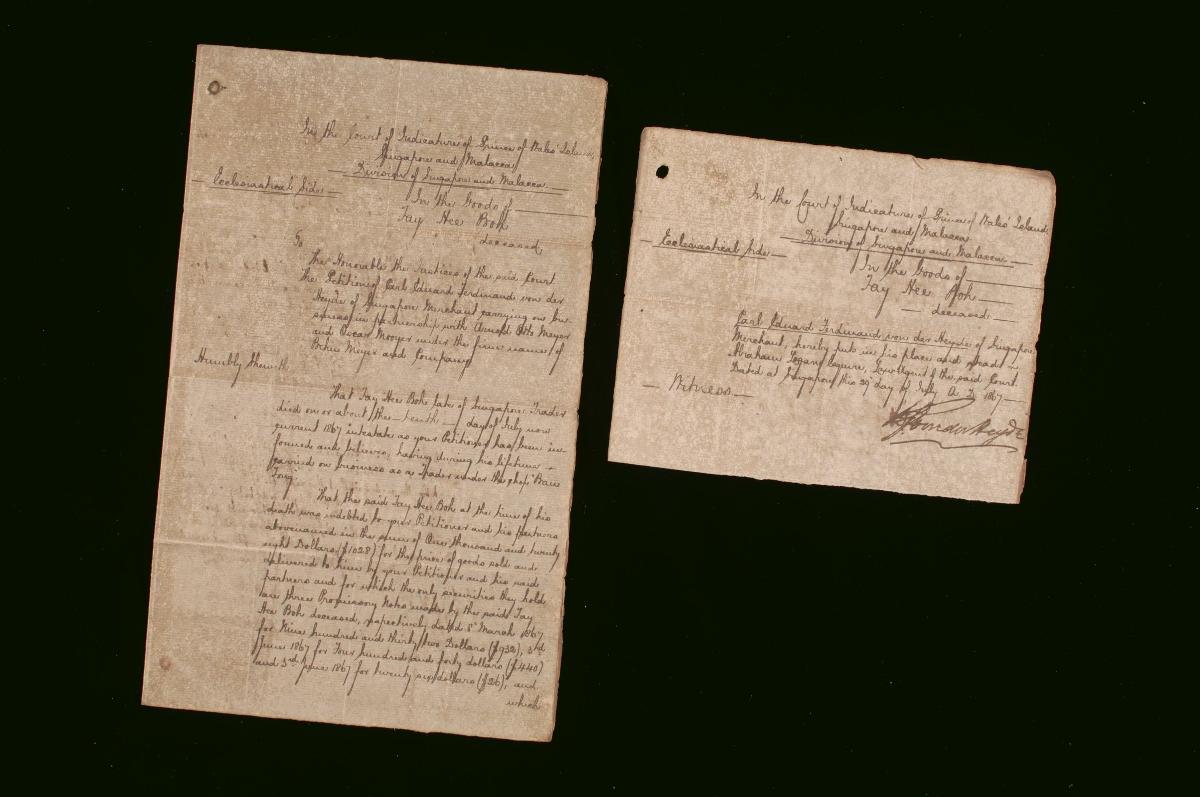 In the Court of Judicature of Prince of Wales' Island,
Singapore and Malacca
Division of Singapore and Malacca.
Ecclesiastical Side
In the Goods of
Tay Hee Boh
deceased,
To
The Honorable the Justices of the said Court
The Petition of Carl Eduard Ferdinand von der
Heyde of Singapore Merchant carrying on bu-
siness in partnership with Arnold Otto Meyer
and Oscar Mooyer under the firm name of
Behn Meyer and Company
Humbly Sheweth
That Tay Hee Boh late of Singapore Trader
died on or about the tenth day of July now
current 1867 intestate as your Petitioner has been in-
formed and believes, having during his lifetime
carried on business as a Trader under the chop "Bau
Tong"
That the said Tay Hee Boh at the time of his
death was indebted to your Petitioner and his partners
abovenamed in the sum of One thousand and twenty
eight Dollars ($1028) for the price of goods sold and
delivered to him by your Petitioner and his said
partners and for which the only securities they hold
are three Promissory Notes made by the said Tay
Hee Boh deceased, respectively dated 8th March 1867
for Nine hundred and thirty two Dollars ($932), 3rd
June 1867 for Four hundred and forty dollars ($440)
and 3rd June 1867 for twenty six dollars ($26), and
which
In the Court of Judicature of Prince of Wales' Island
Singapore and Malacca
Division of Singapore and Malacca.
Ecclesiastical Side
In the Goods of
Tay Hee Boh
deceased
Carl Eduard Ferdinand von der Heyde of Singapore
Merchant, hereby puts in his place and stead
Abraham Logan Esquire, Law Agent of the said Court.
Dated at Singapore this 29th day of July A.D. 1867
Witness
von der Heyde